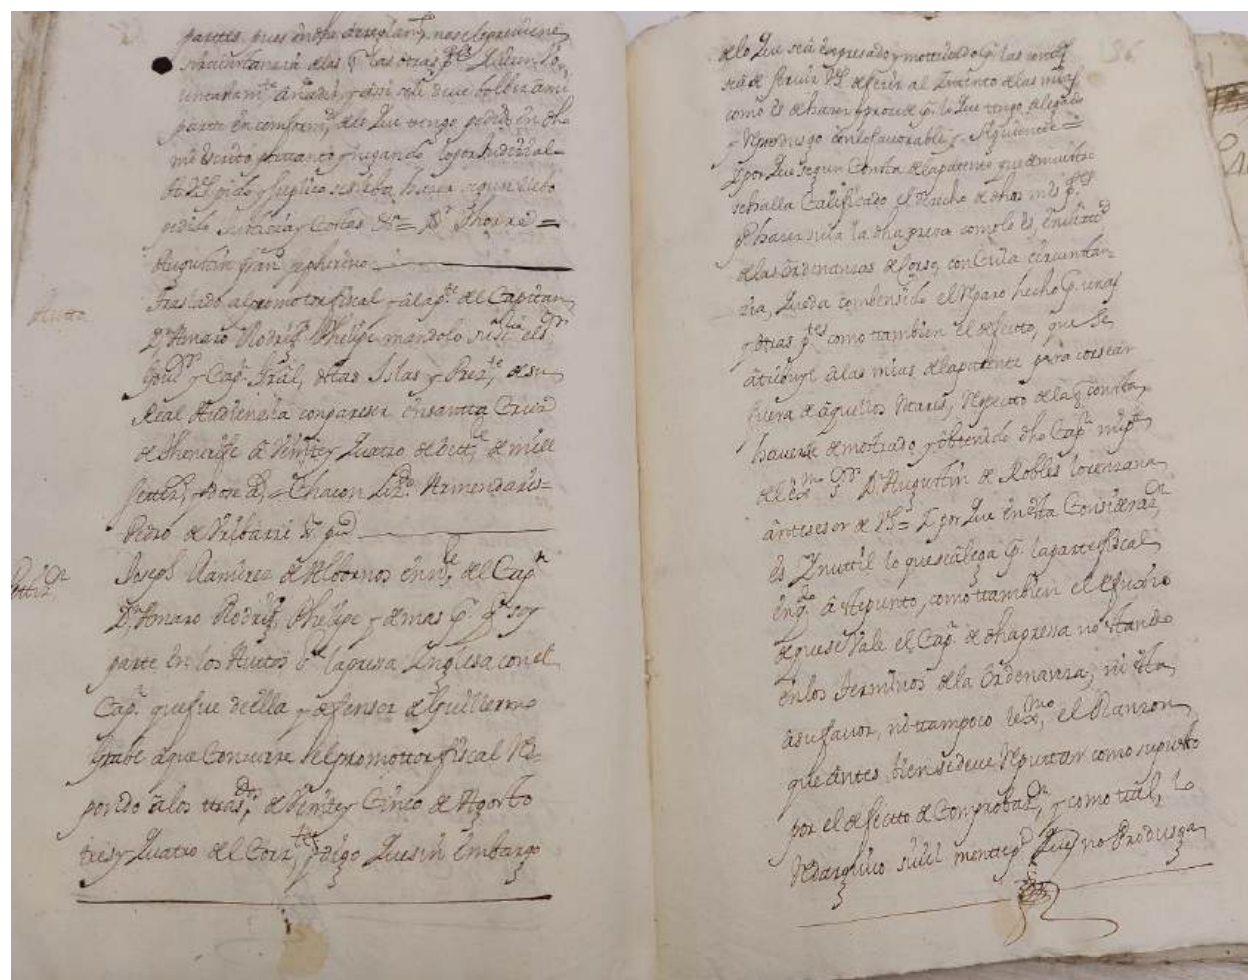 partes, pues en dha
circunstancia de las q las otras ptes
añadir, y assi se deve bolber a mi
parte en conform, de lo que tengo pedido en dho
mi escrito
pido y suplico se sirba haver segun llebo
pedido Justicia y Costas &a =
Augustin
Autto
Traslado al promotor fiscal y a la pte del Capitan
Dn Amaro Rodrig Phelipe mandolo su sria el sr
Govor y Capn Gral, destas Islas y Prezte, de su
Real Audiencia
de Thenerife a Veinte y quatro de
settos y Dose as = Chacon Lizdo Armendaris =
Pedro de Uribarri
Pettizn
Joseph Ramires de Albornos en nre, del Capn
Dn Amaro Rodrig, Phelipe y demas pr qn soy
parte en los Auttos sre la presa Inglesa con el
Capn que fue de ella y defensor de Guillermo
a que Concurre el promottor fiscal Res-
pondo a los trasdos, de Veinte y Cinco de Agosto
tres y quatro del Corrte, y digo que sin embargo
36
de lo que sea expresado y motivado pr las contras
sea de servir VS deferir al Yntento de las mias
como es de haser y procede pr lo que tengo alegado
y Reprodusgo conlofavorable y siguiente =
Y por que segun Consta de la patente que demuestro
se halla Calificado el derecho de dhos mis ptes
pa haser suia la dha presa como lo es, en virttd
de las Ordenansas de Corso, con Cuia circunstan-
zia, queda combensido el Reparo hecho pr unas
y otras ptes como tambien el defecto, que se
atribuye a las mias de la patente para corsear
fuera de aquellos Mares, Respecto de la q consta,
haverse demostrado y obtenido dho Capn mi pte
del exmo Sr Dn Augustin de Robles Lorenzana
anttesesor de VS = Y por que en esta Considerazn
es Ynuttil lo que se alega pr la parte fiscal,
en qto a este punto, como tambien el efugio
de que se Vale el Capn de dha pressa no estando
en los terminos de la Ordenansa, ni esta
a su favor, ni tampoco el Ranson
que antes bien se deve Reputtar como supuesto
por el defecto de Comprobazn, y como tal, lo
Redarguio sivil mente pa que no Produsga